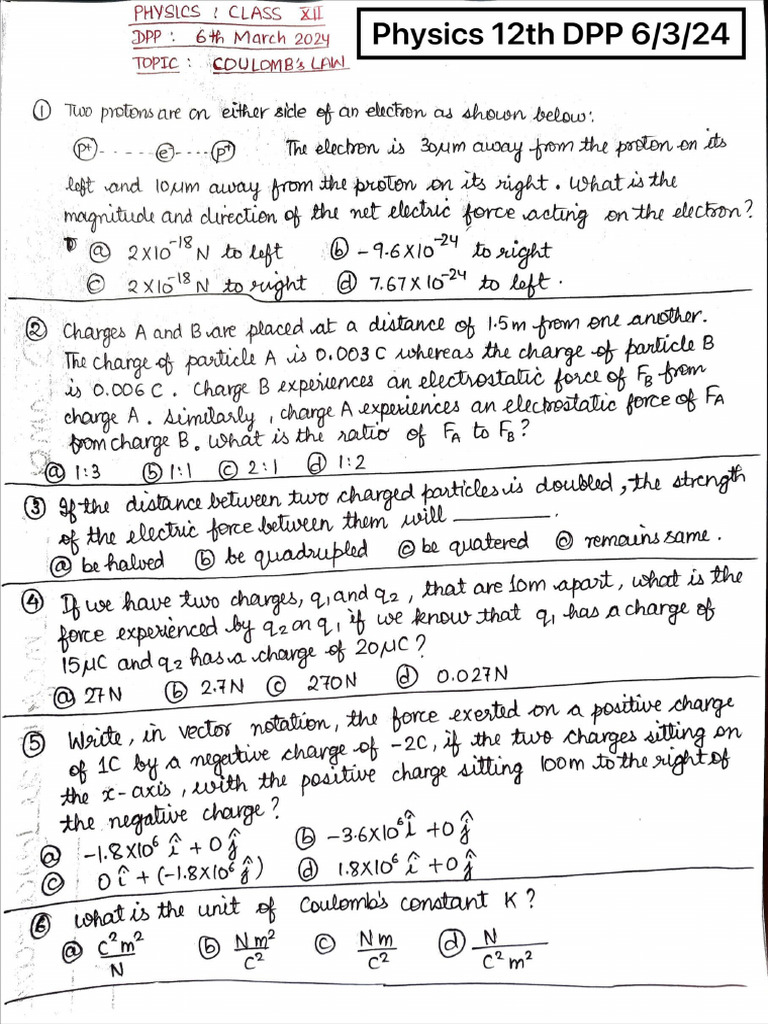 PHYSICS : CLASS XII
DPP : 6th March 2024
TOPIC : COULOMB's LAW
Physics 12th DPP 6/3/24
① Two protons are on either side of an electron as shown below:
p+ ------ e- ---- p+ The electron is 30μm away from the proton on its
left and 10μm away from the proton on its right. What is the
magnitude and direction of the net electric force acting on the electron?
ⓐ 2×10⁻¹⁸ N to left ⓑ -9.6×10⁻²⁴ to right
ⓒ 2×10⁻¹⁸ N to right ⓓ 7.67×10⁻²⁴ to left.
② Charges A and B are placed at a distance of 1.5m from one another.
The charge of particle A is 0.003 C whereas the charge of particle B
is 0.006 C. Charge B experiences an electrostatic force of F_B from
charge A. Similarly, charge A experiences an electrostatic force of F_A
from charge B. What is the ratio of F_A to F_B?
ⓐ 1:3 ⓑ 1:1 ⓒ 2:1 ⓓ 1:2
③ If the distance between two charged particles is doubled, the strength
of the electric force between them will ________.
ⓐ be halved ⓑ be quadrupled ⓒ be quatered ⓓ remains same.
④ If we have two charges, q₁ and q₂, that are 10m apart, what is the
force experienced by q₂ on q₁ if we know that q₁ has a charge of
15μC and q₂ has a charge of 20μC?
ⓐ 27N ⓑ 2.7N ⓒ 270N ⓓ 0.027N
⑤ Write, in vector notation, the force exerted on a positive charge
of 1C by a negative charge of -2C, if the two charges sitting on
the x-axis, with the positive charge sitting 100m to the right of
the negative charge?
ⓐ -1.8×10⁶ î + 0 ĵ ⓑ -3.6×10⁶ î + 0 ĵ
ⓒ 0 î + (-1.8×10⁶ ĵ) ⓓ 1.8×10⁶ î + 0 ĵ
⑥ What is the unit of Coulomb's constant K?
ⓐ C²m²/N ⓑ Nm²/C² ⓒ Nm/C² ⓓ N/C²m²